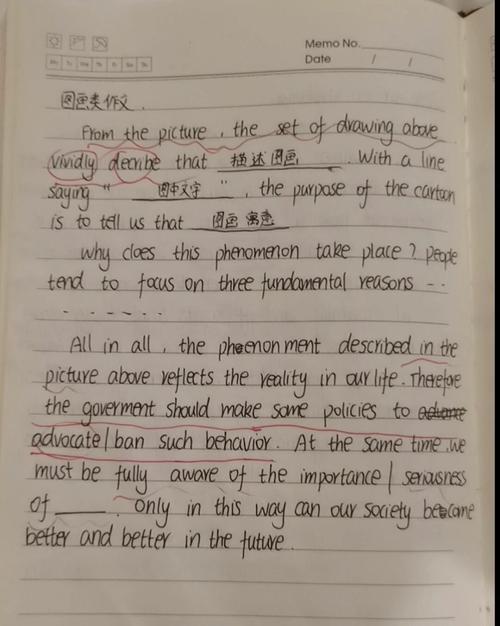 Memo No.
Date / /
Mo Tu We Th Fr Sa Su
图画类作文.
From the picture, the set of drawing above
vividly decribe that 描述图画. With a line
saying " 图中文字 ", the purpose of the cartoon
is to tell us that 图画寓意
why does this phenomenon take place? people
tend to focus on three fundamental reasons - -
- - - - - -
All in all, the pheenonment described in the
picture above reflects the reality in our life. Therefore
the goverment should make some policies to
advocate/ban such behavior. At the same time, we
must be fully aware of the importance/seriousness
of ____. only in this way can our society become
better and better in the future.